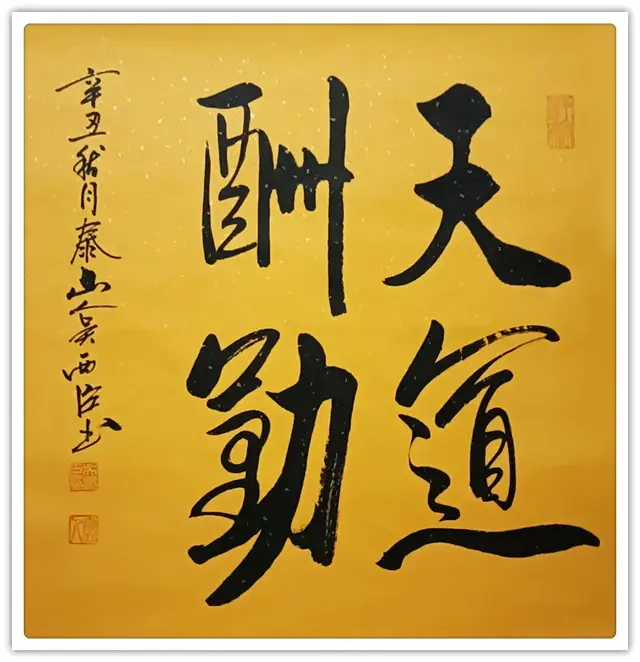 天道
酬勤
辛丑秋月泰山人吴西臣书